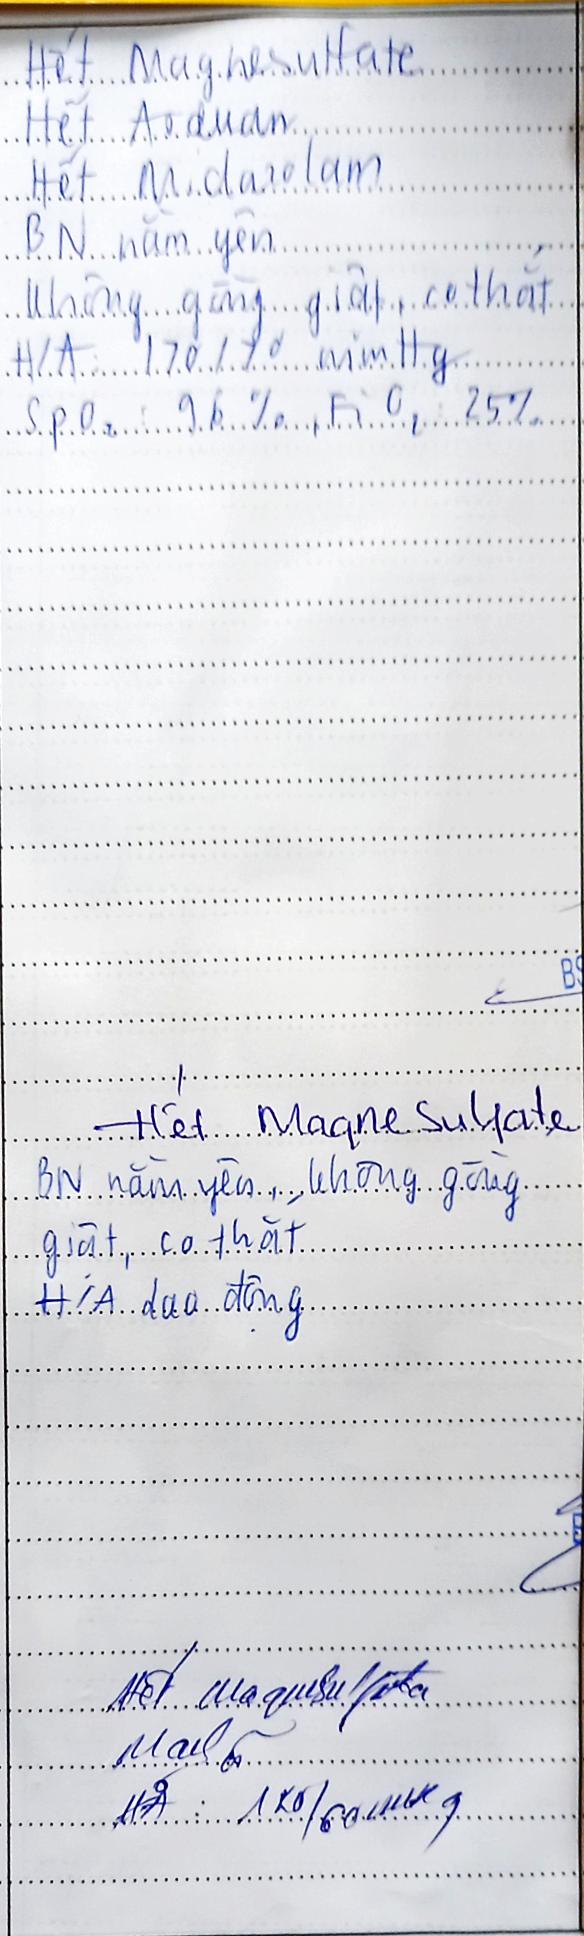 Hết Magnesulfate
Hết Arduan
Hết Midazolam
BN nằm yên
Không gồng giật, co thắt
H/A: 170/70 mmHg
SpO₂: 96%, FiO₂: 25%
BS
Hết Magnesulfate
BN nằm yên, không gồng
giật, co thắt
H/A dao động
Hết Magnesulfate
HA: /60 mmHg